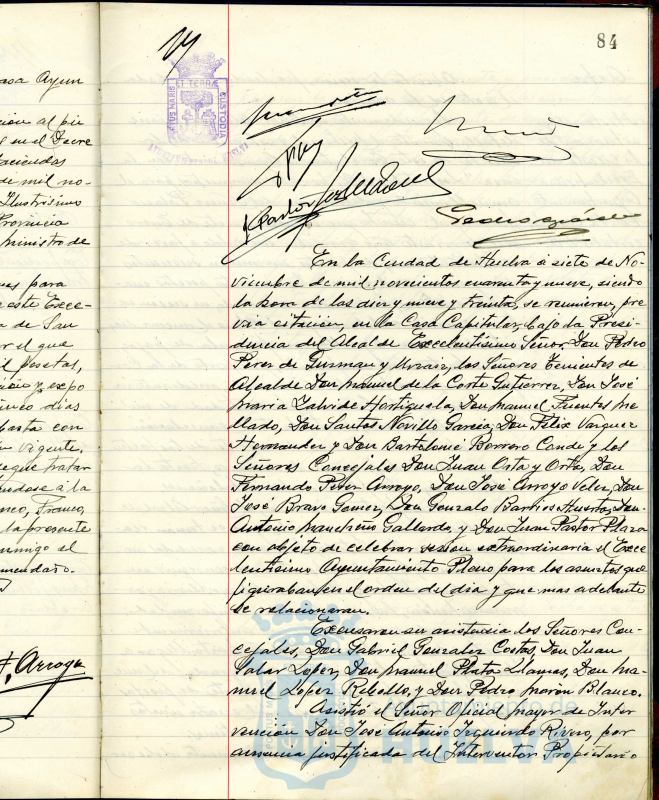 84
PORTUS MARIS ET TERRAE CUSTODIA
asa Ayun
ción al pú
en el Decre
Haciendas
de mil no-
Ilustrísimo
Provincia
ministro de
para
este Exce-
a de San
r el que
il pesetas,
y expo
inco días
basta con
vigente,
tratar
ndose a la
nco, Franco,
la presente
nmigo el
F. Arroyo
Pastor
Pedro
En la Ciudad de Huelva a siete de No-
viembre de mil novecientos cuarenta y nueve, siendo
la hora de las diez y nueve y treinta, se reunieron, pre
via citación, en la Casa Capitular, bajo la Presi-
dencia del Alcalde Excelentísimo Señor Don Pedro
Perez de Guzman y Urzaiz, los Señores Tenientes de
Alcalde Don Manuel de la Corte Gutierrez, Don José
Maria Zalvide Hortiguela, Don Manuel Fuentes Me
llado, Don Santos Novillo Garcia, Don Felix Vazquez
Hernandez y Don Bartolomé Borrero Conde y los
Señores Concejales Don Juan Orta y Orta, Don
Fernando Perez Arroyo, Don José Arroyo Velez, Don
José Bravo Gomez, Don Gonzalo Barrios Huerta, Don
Antonio Mancheño Gallardo y Don Juan Pastor Plaza
con objeto de celebrar sesion extraordinaria el Exce
lentísimo Ayuntamiento Pleno para los asuntos que
figuraban en el orden del dia y que mas adelante
se relacionaran.
Excusaron su asistencia los Señores Con-
cejales, Don Gabriel Gonzalez Costas, Don Juan
Salar Lopez, Don Manuel Plata Llamas, Don Ma-
nuel Lopez Rebollo, y Don Pedro Moron Blanco.
Asistió el Señor Oficial Mayor de Inter
vención Don José Antonio Izquierdo Rivero, por
ausencia justificada del Interventor Propietario